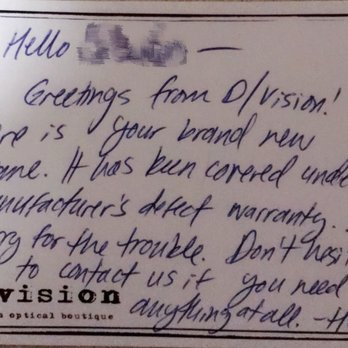 Hello —
Greetings from D/Vision!
ere is your brand new
ame. It has been covered unde
nufacturer's defect warranty.
ry for the trouble. Don't hesi
to contact us if you need
anything at all. -H
vision
optical boutique